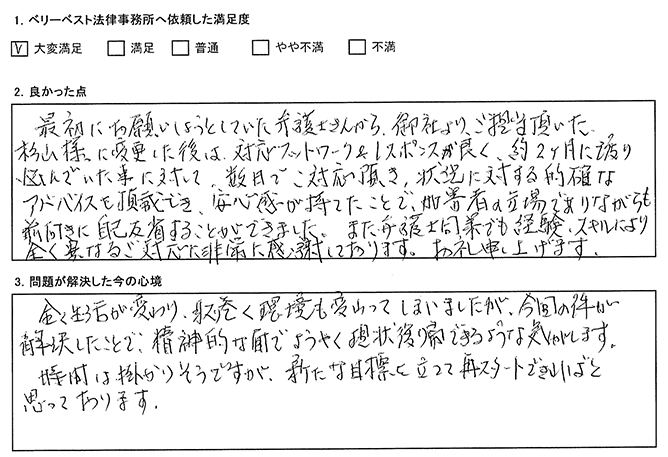 1. ベリーベスト法律事務所へ依頼した満足度
V 大変満足 満足 普通 やや不満 不満
2. 良かった点
最初にお願いしようとしていた弁護士さんから、御社より、ご担当頂いた
杉山様に変更した後は、対応フットワーク&レスポンスが良く、約2ヶ月に渡り
悩んでいた事に対して、数日でご対応頂き、状況に対する的確な
アドバイスも頂戴でき、安心感が持てたことで、加害者の立場でありながらも
前向きに自己反省することができました。また弁護士同業でも経験、スキルにより
全く異なるご対応に非常に感謝しております。お礼申し上げます。
3. 問題が解決した今の心境
全く生活が変わり、取巻く環境も変わってしまいましたが、今回の件が
解決したことで、精神的な面でようやく現状復帰できるような気がします。
時間は掛かりそうですが、新たな目標に立って再スタートできればと
思っております。